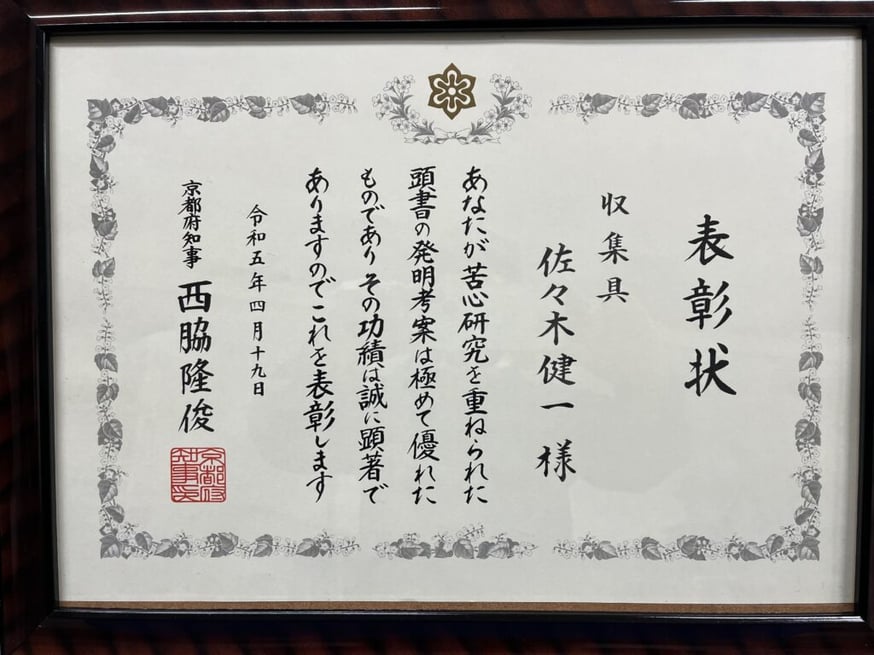 表彰状
収集具
佐々木健一 様
あなたが苦心研究を重ねられた
頭書の発明考案は極めて優れた
ものであり その功績は誠に顕著で
ありますのでこれを表彰します
令和五年四月十九日
京都府知事 西脇隆俊
京都府知事印